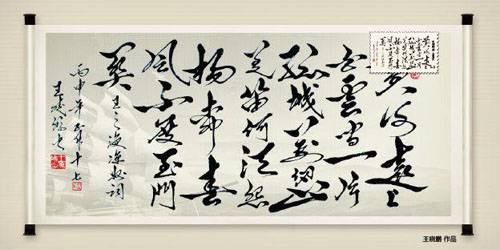 黄河遠上
白雲间一片
孤城万仞山
羌笛何须怨
杨柳春
风不度玉门
关 王之涣凉州词
丙申年 十七
王晓鹏书
王晓鹏 作品